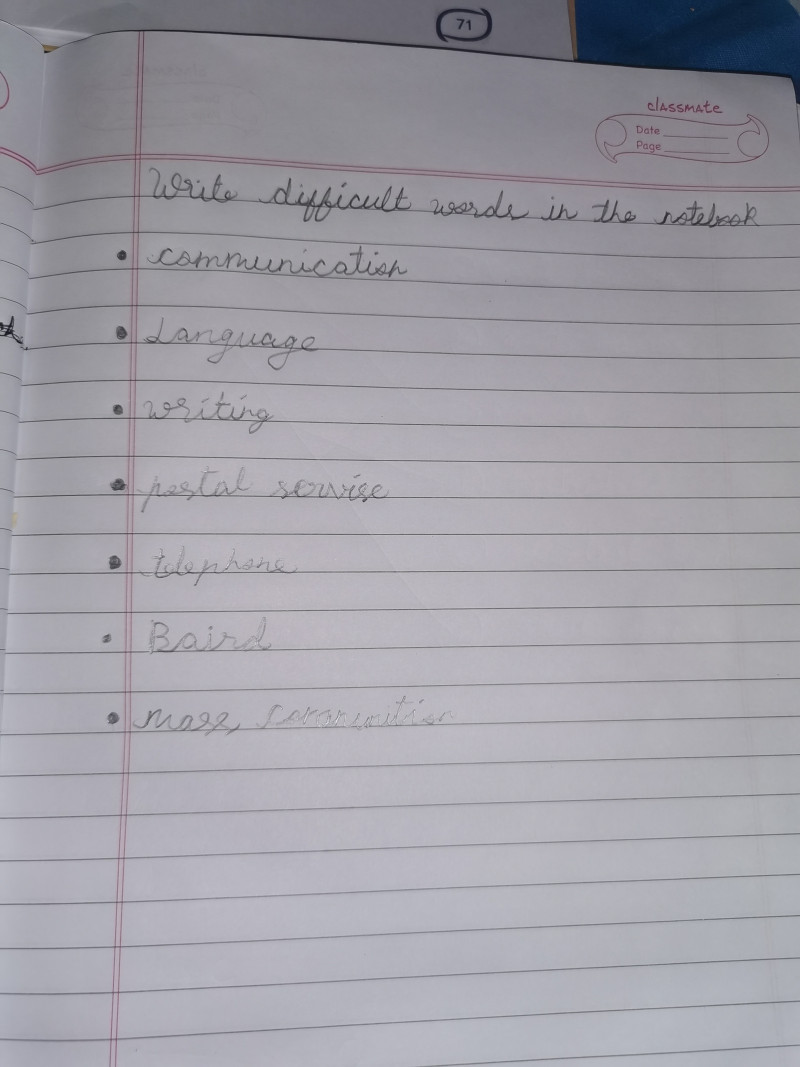 71
classmate
Date
Page
Write difficult words in the notebook
• communication
• Language
• writing
• postal servise
• telephone
• Baird
• mass communition